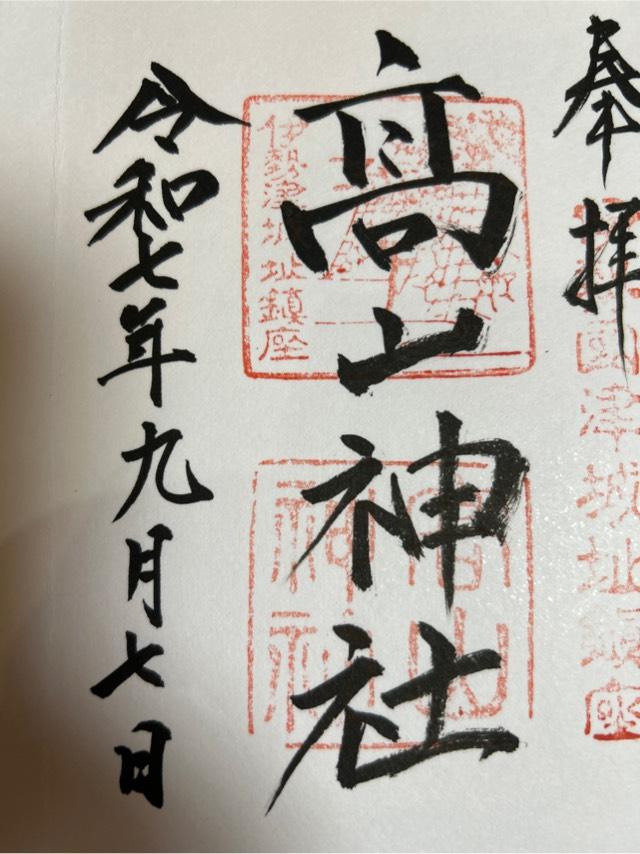 奉拝
國津城址鎮座
高山神社
伊勢津城址鎮座
高山神社
令和七年九月七日